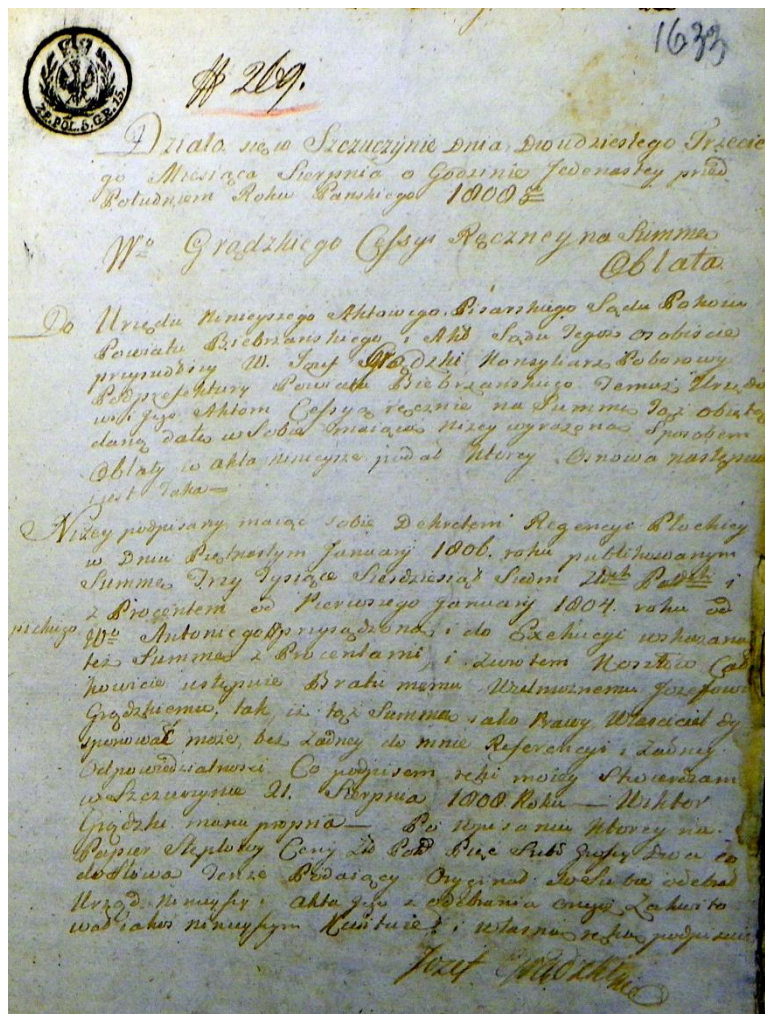 1633
# 269.
ZŁ.POL.5.GR.15.
Działo się w Szczuczynie Dnia Dwudziestego Trzecie
go Miesiąca Sierpnia o Godzinie Jedenastey przed
Południem Roku Pańskiego 1808go
Wo Grądzkiego Cessyi Ręczney na Summę
Oblata.
Do Urzędu Ninieyszego Aktowego Pisarskiego Sądu Pokoiu
Powiatu Biebrzańskiego i Akt Sądu Tegoż osobiście
przyszedłszy W. Jozef Grądzki Konsyliarz Poborowy
Podprefektury Powiatu Biebrzańskiego Temuż Urzędo
wi i Jego Aktom Cessyą ręcznie na Summę Tąż
daną datę w Sobie maiącą niżey wyrażoną Sposobem
Oblaty do akt ninieyszych podał Ktorey Osnowa następna
jest Taka
Niżey podpisany maiąc sobie Dekretem Regencyi Płockiey
w Dniu Piętnastym January 1806. roku publikowanym
Summę Trzy Tysiące Sześdziesiąt Siedm Złotych Polskich i
z Procentem od Pierwszego January 1804. roku od
Wo Antoniego przysądzoną i do Exekucyi wskazaną
też Summę z Procentami i zwrotem Kosztow Cał
kowicie ustępuie Bratu memu Wielmożnemu Jozefowi
Grądzkiemu, tak, iż tąż Summą iako Prawy Właściciel dy
sponować może, bez żadney do mnie Referencyi i żadney
Odpowiedzialności Co podpisem ręki moiey Stwierdzam
w Szczuczynie 21. Sierpnia 1808 Roku — Wiktor
Grądzki manu propria — Po wpisaniu Ktorey na
Papier Stęplowy Ceny Zł Pol Pięć Sreb Groszy Dwa co
do słowa Tenże Podaiący Oryginał do Siebie odebrał
Urząd ninieyszy i akta jego z odebrania onego zakwito
wał iakoż ninieyszym Kwituie i własną ręką podpisuie
Jozef Grądzki mp